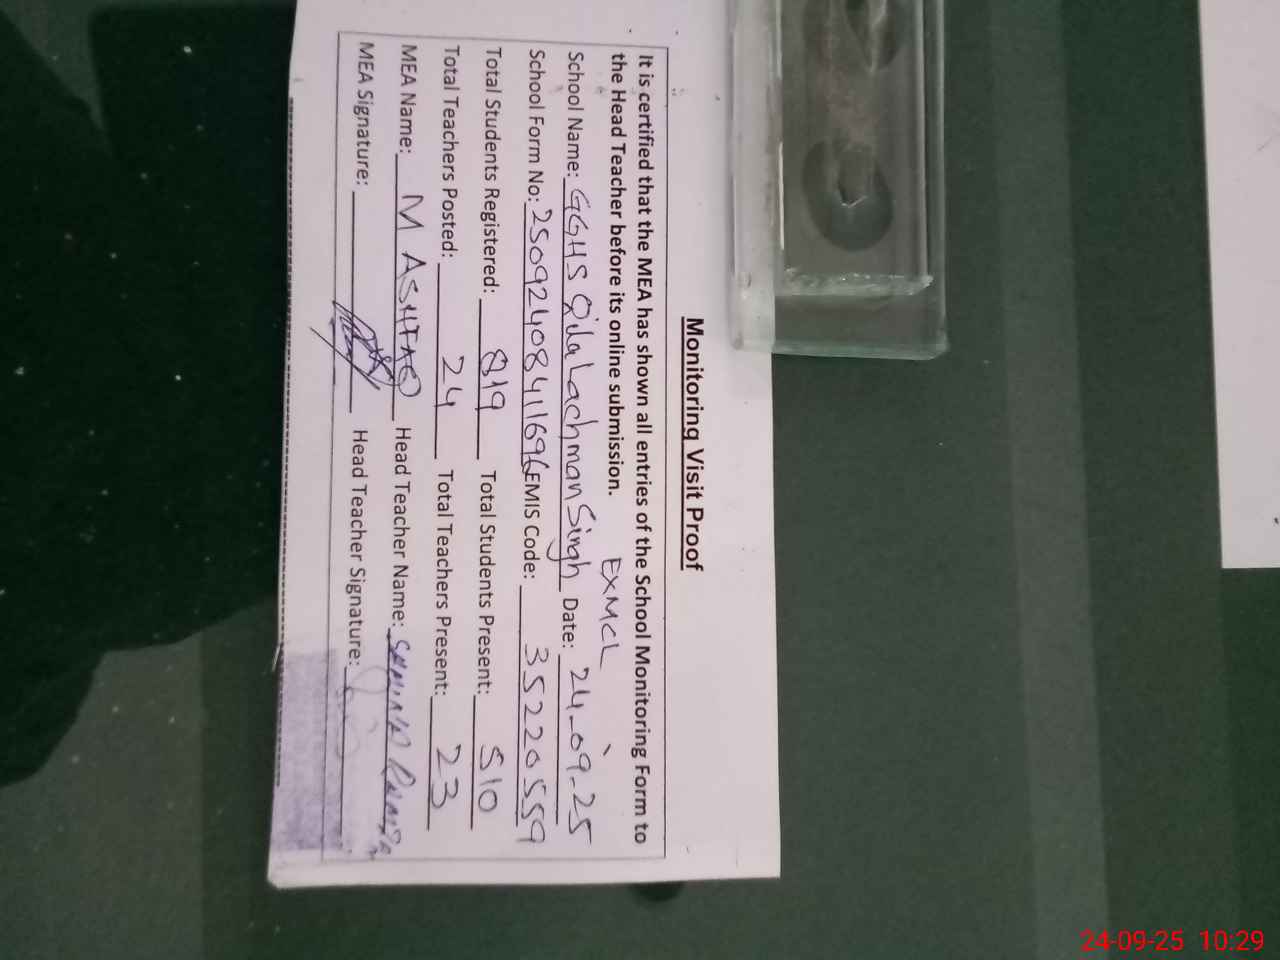 Monitoring Visit Proof
It is certified that the MEA has shown all entries of the School Monitoring Form to
the Head Teacher before its online submission. EXMCL
School Name: GGHS Qila Lachman Singh Date: 24-09-25
School Form No: 25092408411696 EMIS Code: 35220559
Total Students Registered: 819 Total Students Present: 510
Total Teachers Posted: 24 Total Teachers Present: 23
MEA Name: M ASHFAQ Head Teacher Name:
MEA Signature: Head Teacher Signature:
24-09-25 10:29